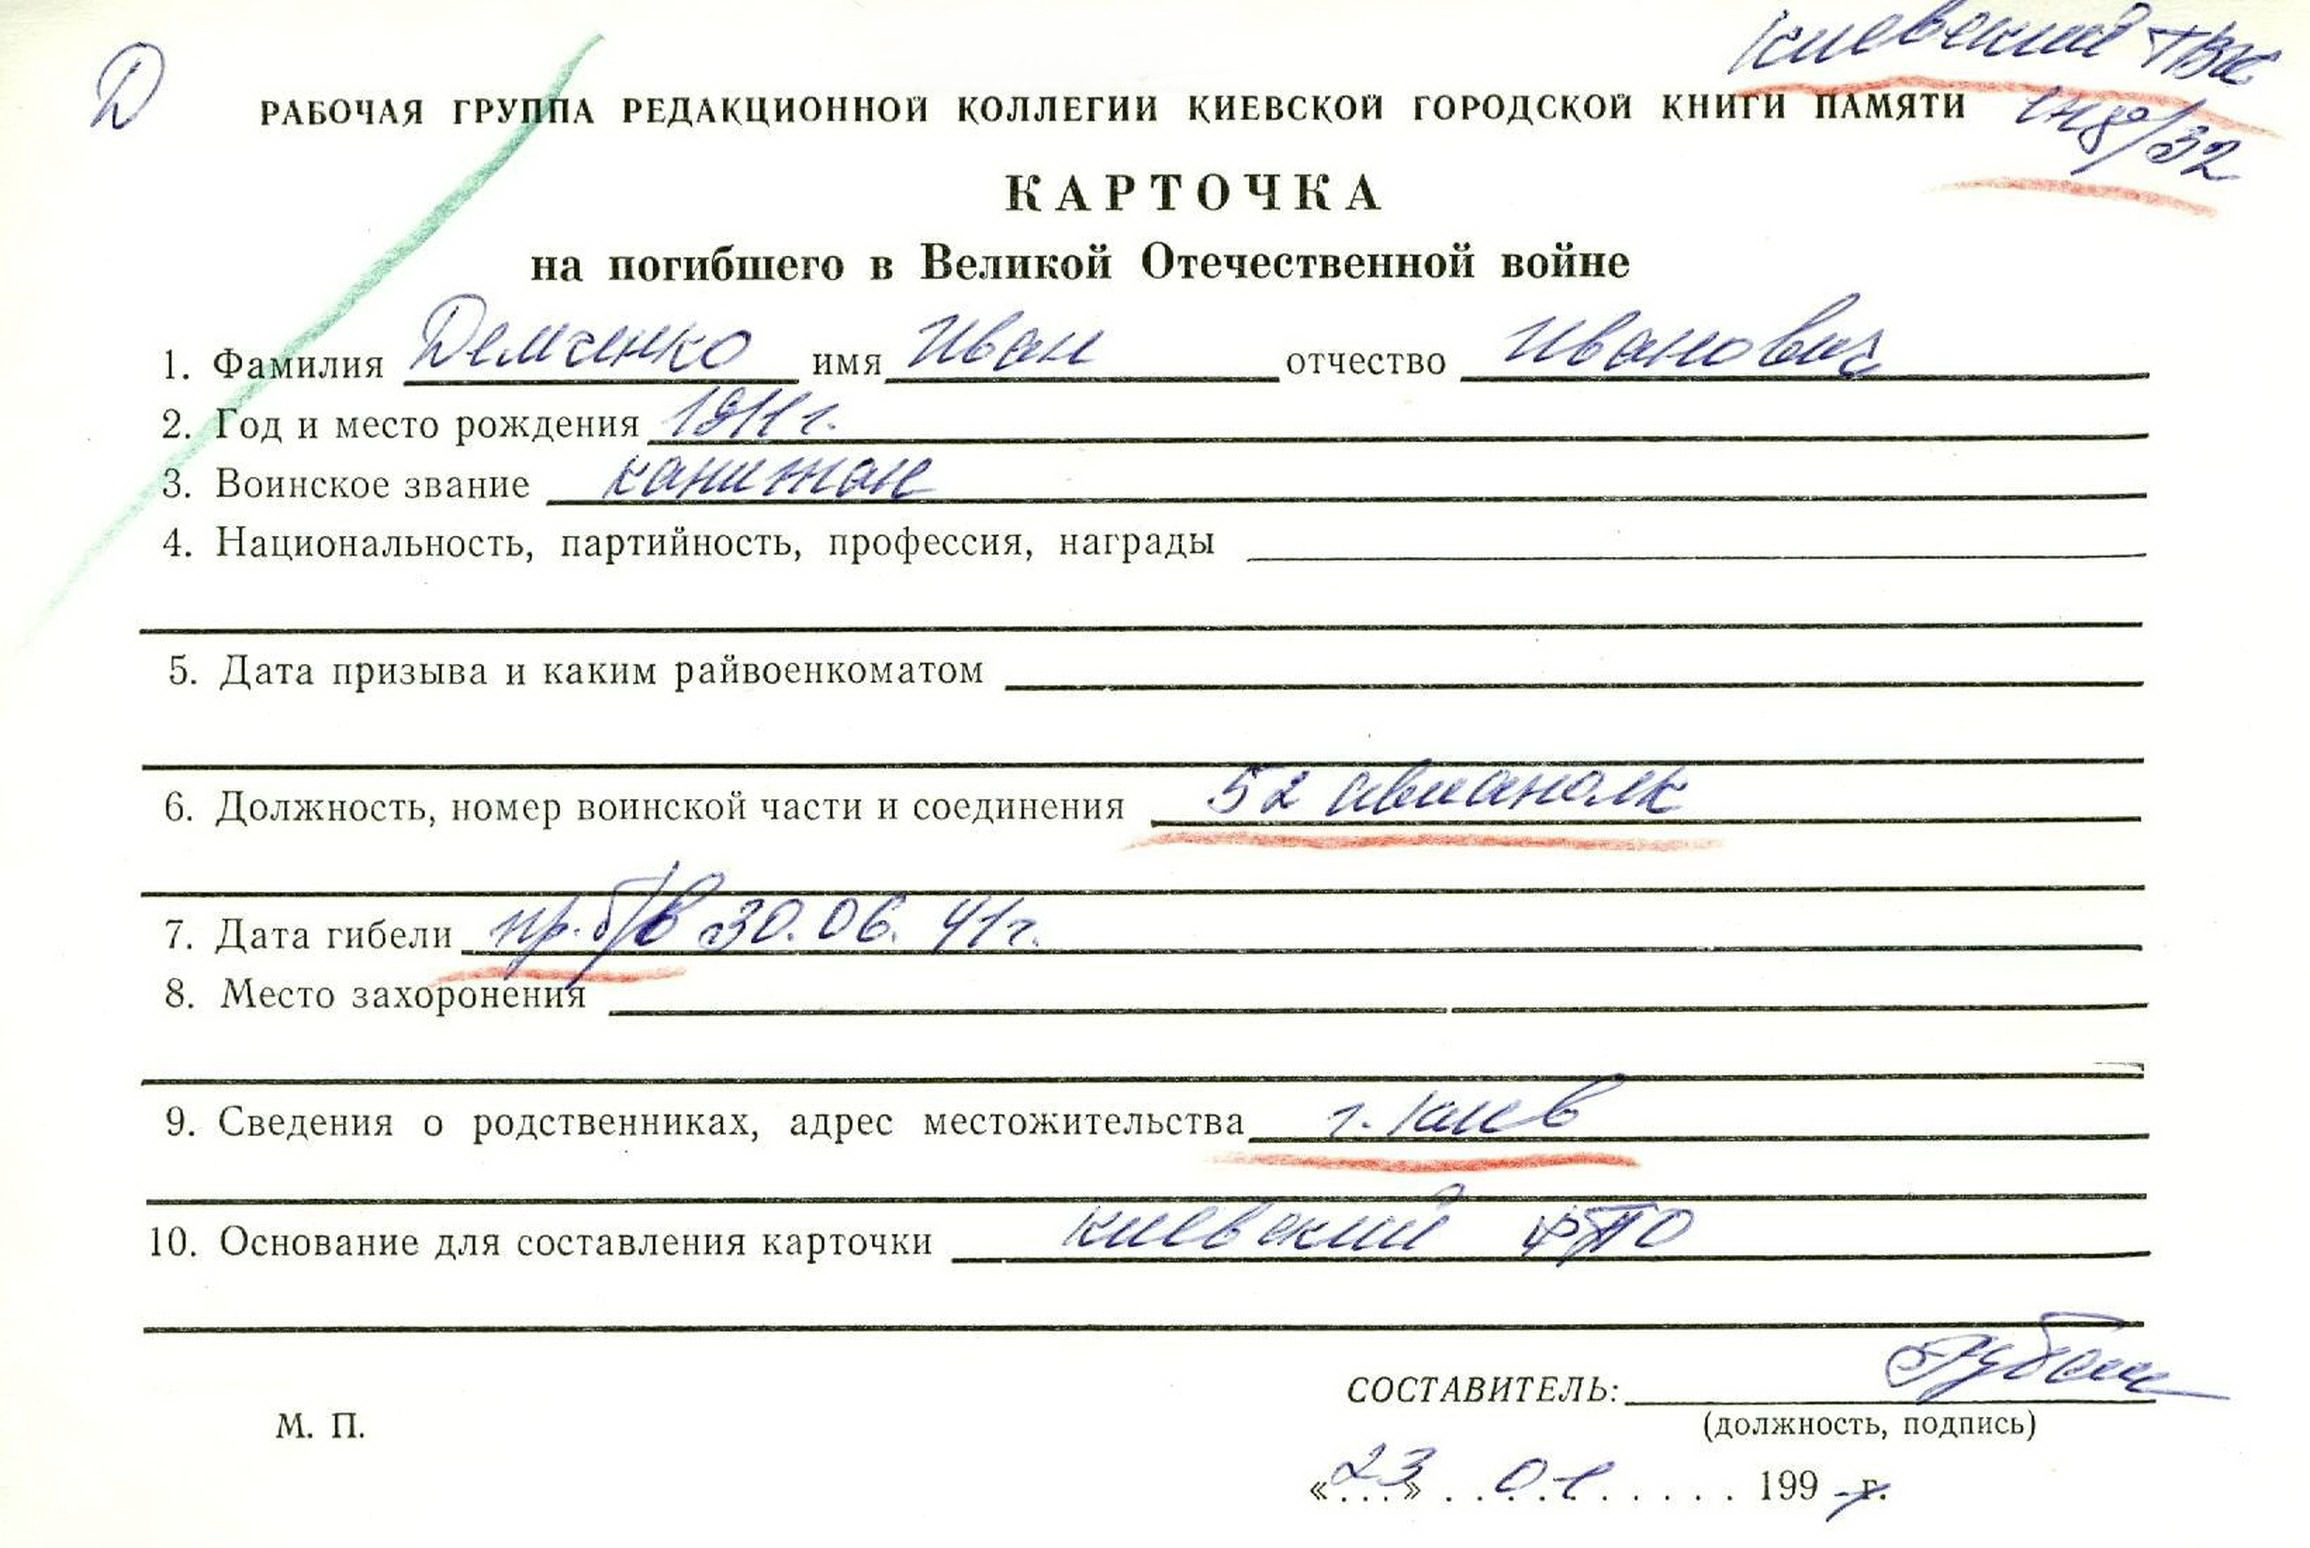 Киевский ГВК
Д
РАБОЧАЯ ГРУППА РЕДАКЦИОННОЙ КОЛЛЕГИИ КИЕВСКОЙ ГОРОДСКОЙ КНИГИ ПАМЯТИ
КАРТОЧКА
на погибшего в Великой Отечественной войне
1. Фамилия Демченко имя Иван отчество Иванович
2. Год и место рождения 1911 г.
3. Воинское звание капитан
4. Национальность, партийность, профессия, награды
5. Дата призыва и каким райвоенкоматом
6. Должность, номер воинской части и соединения 52 авиаполк
7. Дата гибели пр. б/в 30.06.41 г.
8. Место захоронения
9. Сведения о родственниках, адрес местожительства г. Киев
10. Основание для составления карточки Киевский
СОСТАВИТЕЛЬ:
М. П.
(должность, подпись)
«23» 01 199 г.